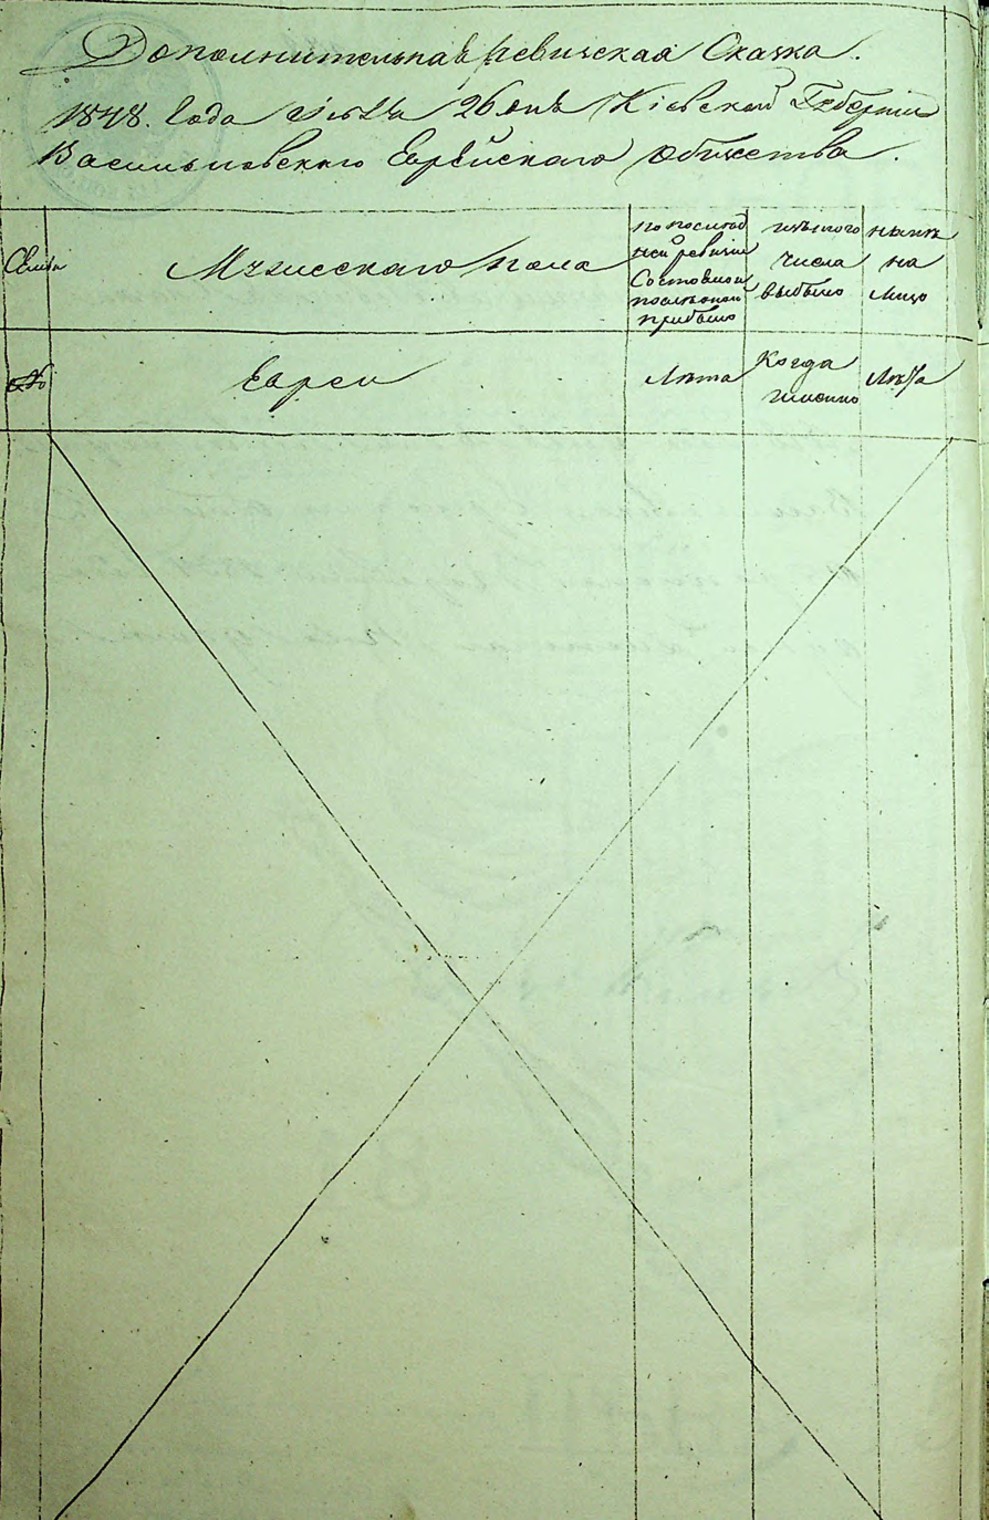 Дополнительная ревизская Сказка.
1848. Года Июля 26 дня Кіевской Губерніи
Васильковскаго Еврейскаго Общества.
Семьи
Мужескаго пола
по послед
ней ревизіи
Состояло и
после оной
прибыло
изъ того
числа
выбыло
нынѣ
на
лицо
№
Евреи
Лѣта
Когда
именно
Лѣта